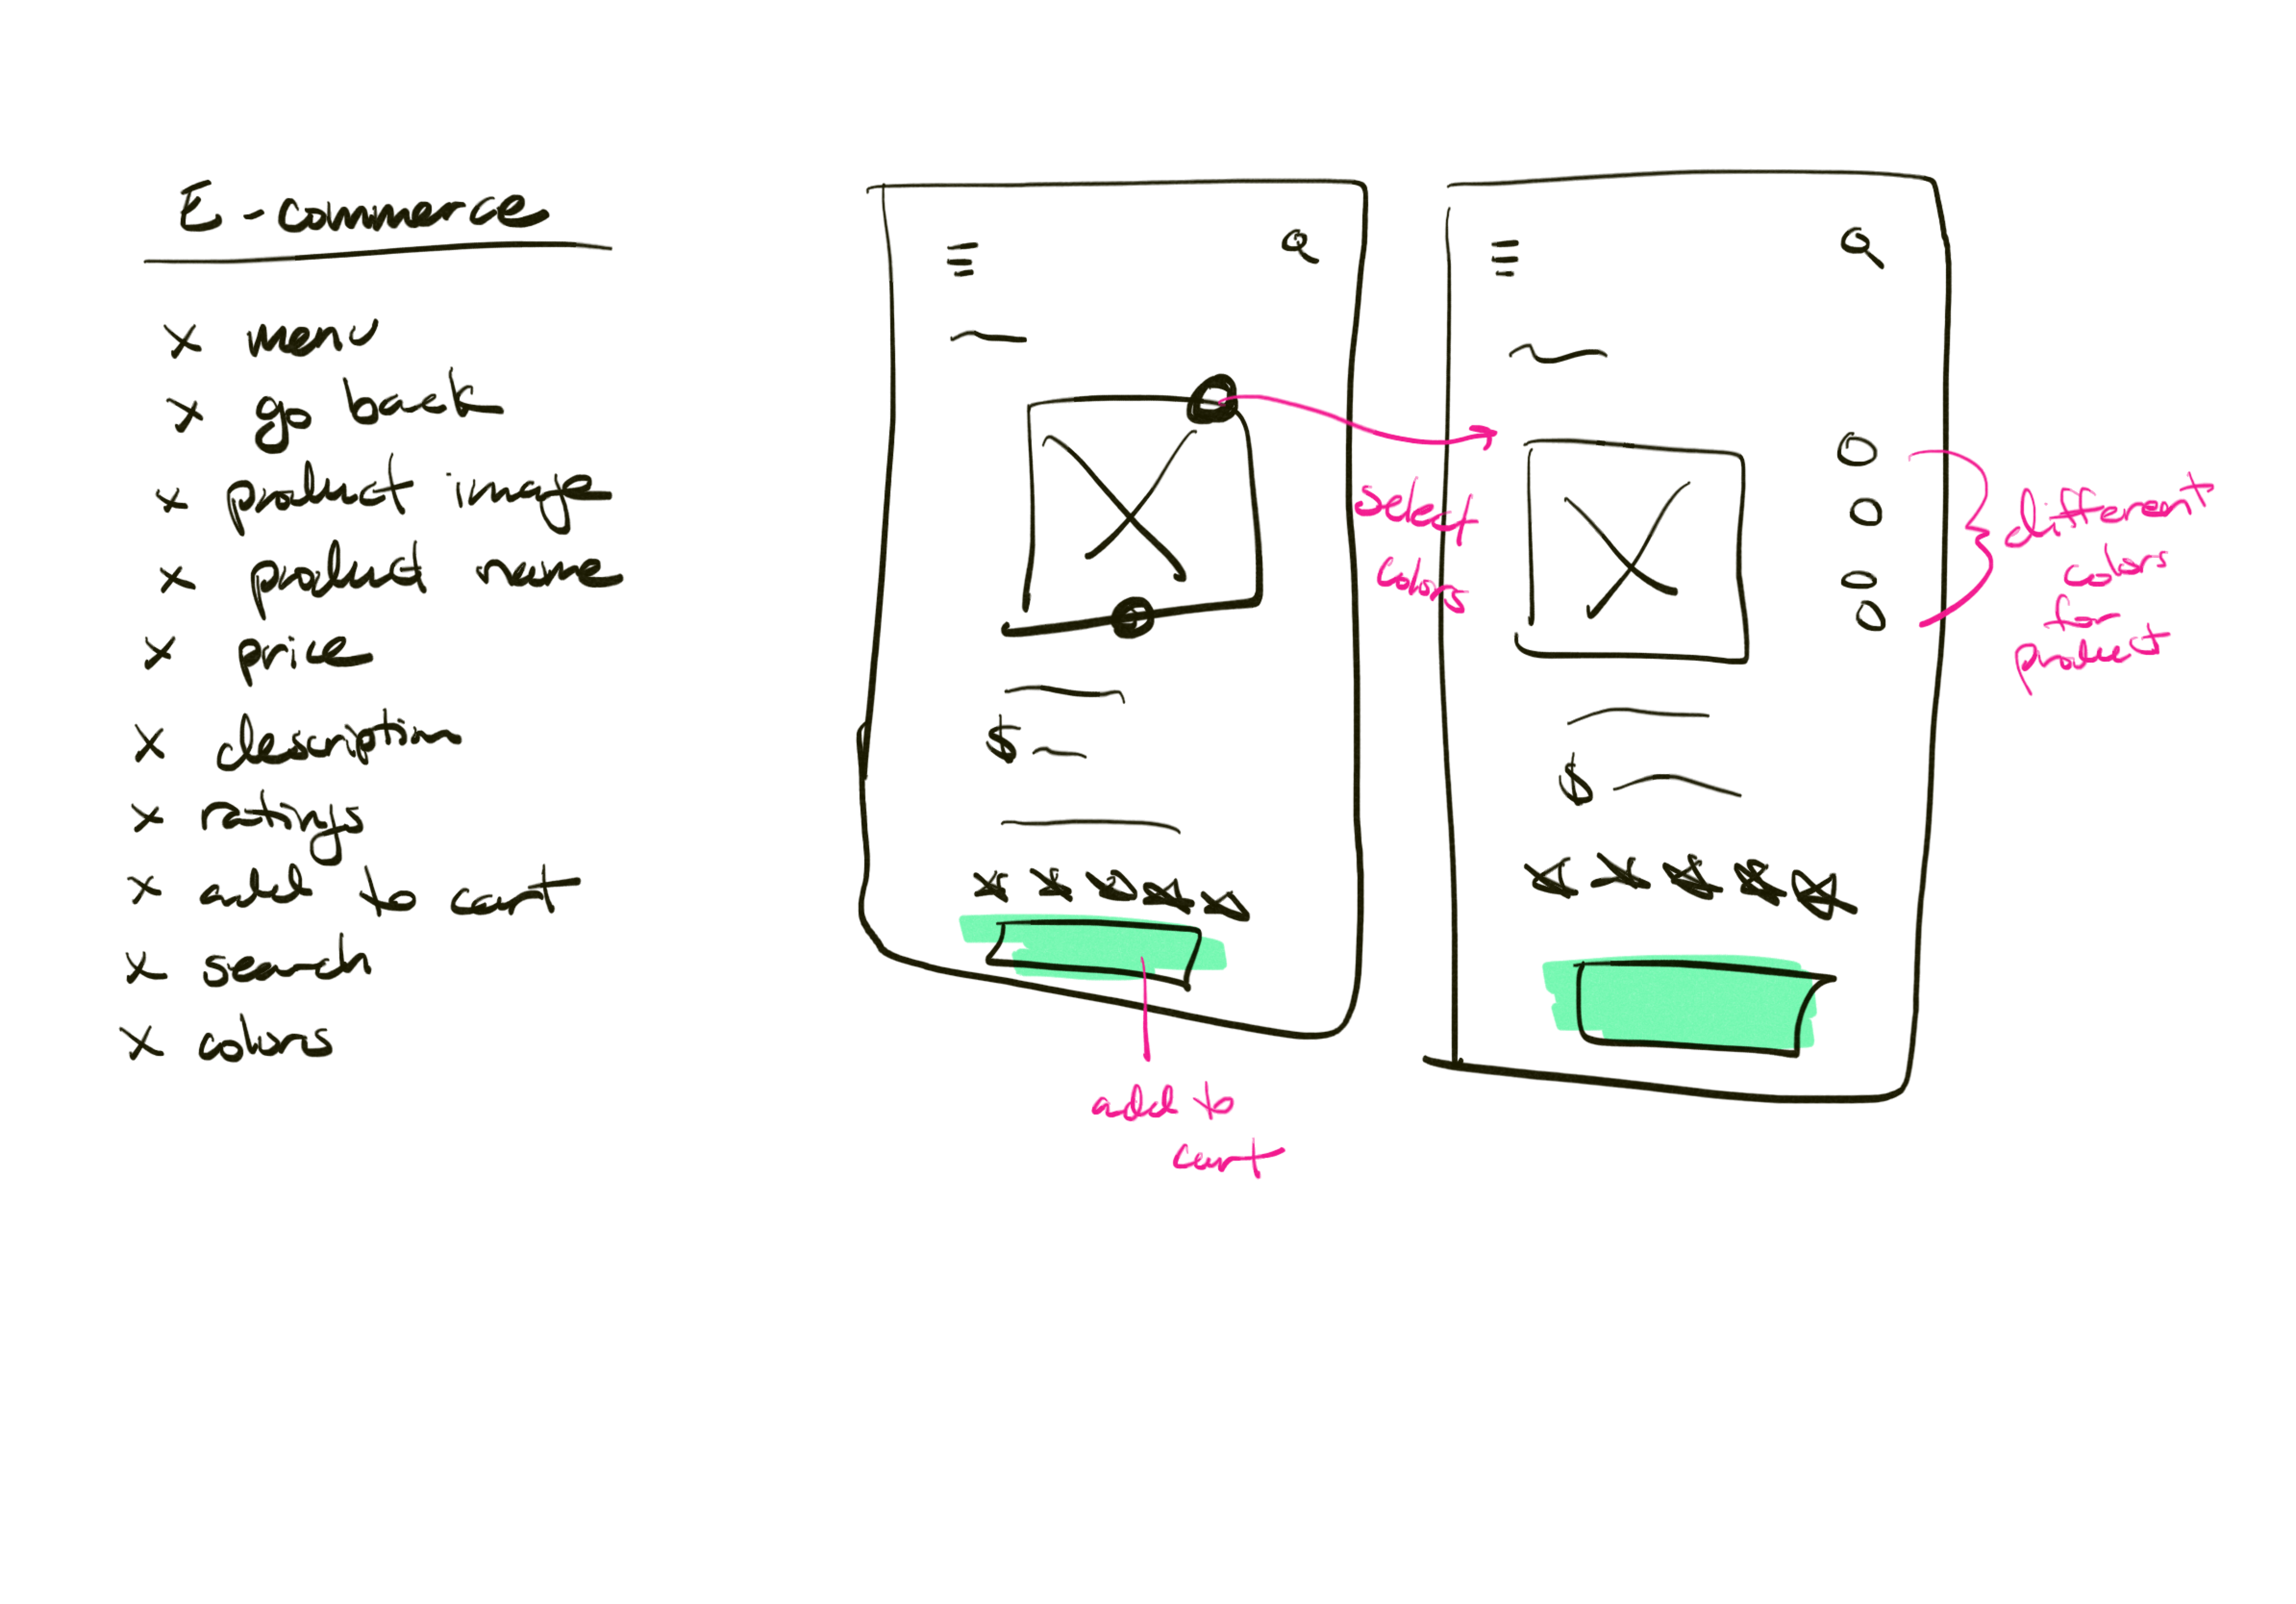 E-commerce
x menu
x go back
x product image
x product name
x price
x description
x ratings
x add to cart
x search
x colors
select
colors
$
add to
cart
$
different
colors
for
product